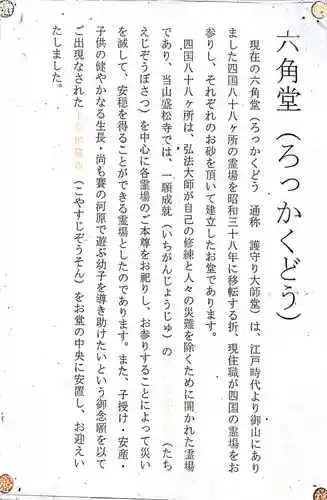 六角堂（ろっかくどう）
現在の六角堂（ろっかくどう　通称　護守り大師堂）は、江戸時代より御山にあり
ました四国八十八ヶ所の霊場を昭和三十八年に移転する折、現住職が四国の霊場をお
参りし、それぞれのお砂を頂いて建立したお堂であります。
四国八十八ヶ所は、弘法大師が自己の修練と人々の災難を除くために開かれた霊場
であり、当山盛松寺では、一願成就（いちがんじょうじゅ）の（たち
えじぞうぼさつ）を中心に各霊場のご本尊をお祀りし、お参りすることによって災い
を滅して、安穏を得ることができる霊場としたのであります。また、子授け・安産・
子供の健やかなる生長・尚も賽の河原で遊ぶ幼子を導き助けたいという御念願を以て
ご出現なされた（こやすじぞうそん）をお堂の中央に安置し、お迎えい
たしました。